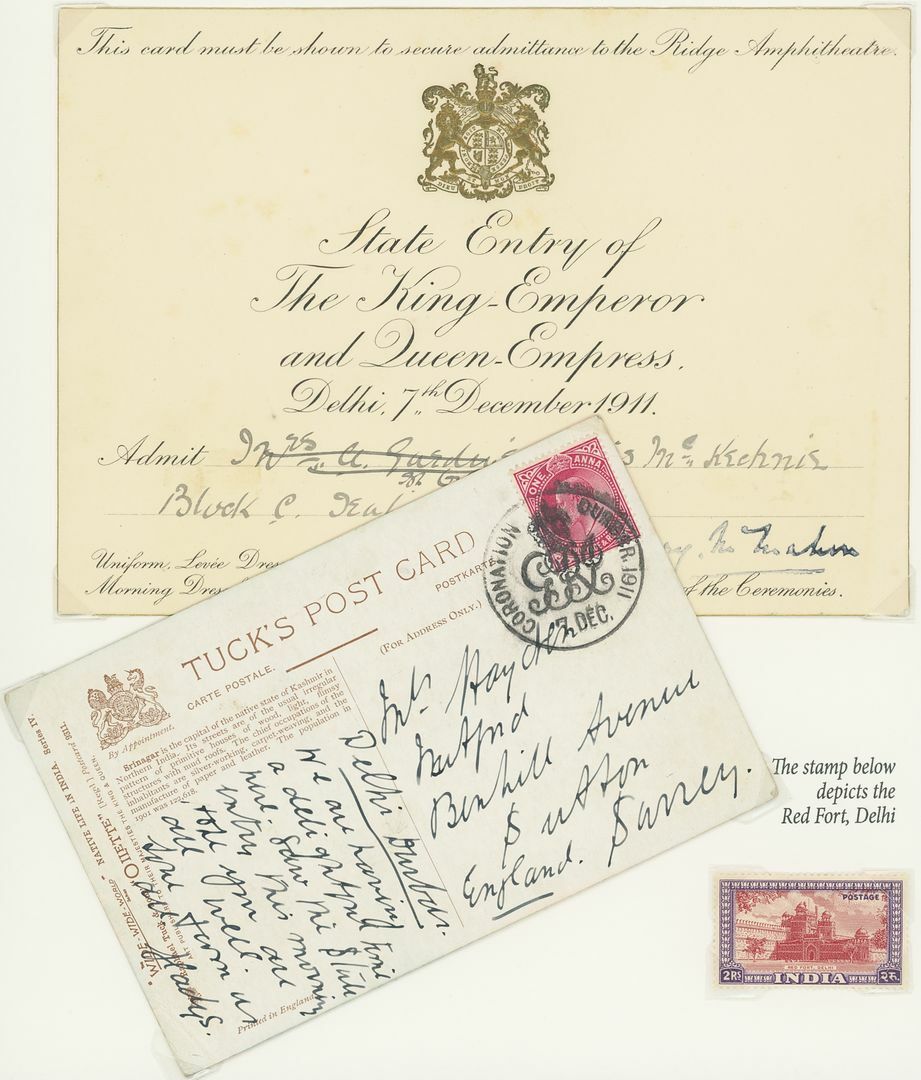 This card must be shown to secure admittance to the Ridge Amphitheatre.
DIEU ET MON DROIT
State Entry of
The King-Emperor
and Queen-Empress.
Delhi, 7th December 1911.
Admit Mrs Mc Kechnie
Block C. Seat
Uniform, Levée
Morning
of the Ceremonies.
TUCK'S POST CARD
CARTE POSTALE.
POSTKARTE
(FOR ADDRESS ONLY.)
By Appointment.
Srinagar is the capital of the native state of Kashmir in
Northern India. Its streets are of the usual irregular
pattern of primitive houses of wood, light, flimsy
structures with mud roofs. The chief occupations of the
inhabitants are silver-working, carpet-weaving, and the
manufacture of paper and leather. The population in
1901 was
"WIDE-WIDE-WORLD" NATIVE LIFE IN INDIA. Series IV.
"OILETTE" [Regd.] Postcard 9311.
Raphael Tuck &
ART PUBLISHERS TO THEIR MAJESTIES THE KING & QUEEN.
Printed in England
Delhi Durbar.
We are having
a delightful time
Saw the State
entry this morning
all are
well.
love from us
all
Gladys.
ONE ANNA
CORONATION DURBAR. 1911
7. DEC.
Mrs Hayden
Benhill Avenue
Sutton
Surrey.
England.
The stamp below
depicts the
Red Fort, Delhi
POSTAGE
RED FORT, DELHI
2RS INDIA २रु.